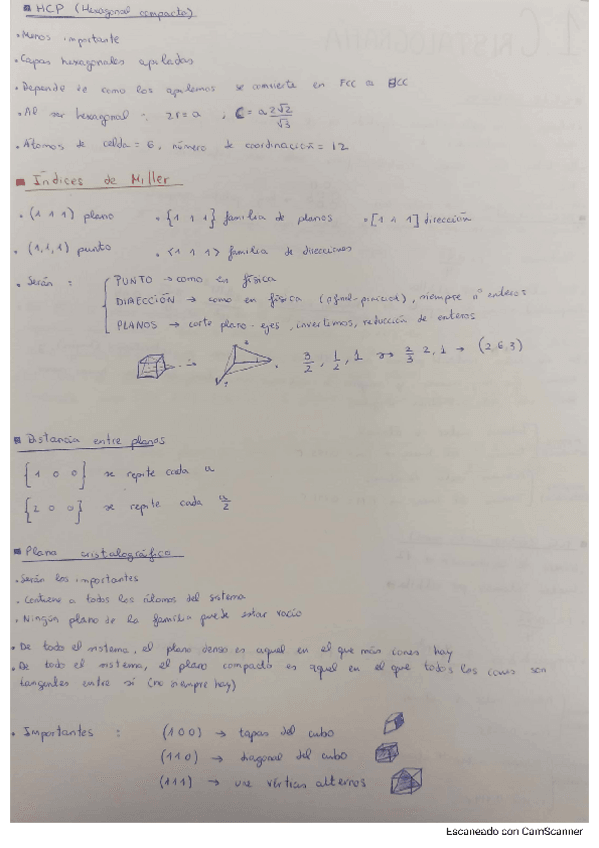 HCP (Hexagonal compacta)
• Menos importante
• Capas hexagonales apiladas
• Depende de como los apilemos se convierte en FCC o BCC
• Al ser hexagonal : 2r = a , C = a 2√2/√3
• Átomos de celda = 6, número de coordinación = 12
Índices de Miller
• (1 1 1) plano • {1 1 1} familia de planos • [1 1 1] dirección
• (1,1,1) punto • <1 1 1> familia de direcciones
• Serán :
PUNTO → como en física
DIRECCIÓN → como en física (final-principio), siempre nº enteros
PLANOS → corte plano-ejes, invertimos, reducción de enteros
3/2, 1/2, 1 → 2/3 2, 1 → (2 6 3)
Distancia entre planos
{1 0 0} se repite cada a
{2 0 0} se repite cada a/2
Plano cristalográfico
• Serán los importantes
• Contiene a todos los átomos del sistema
• Ningún plano de la familia puede estar vacío
• De todo el sistema, el plano denso es aquel en el que más iones hay
• De todo el sistema, el plano compacto es aquel en el que todos los iones son
tangentes entre sí (no siempre hay)
• Importantes :
(1 0 0) → tapas del cubo
(1 1 0) → diagonal del cubo
(1 1 1) → une vértices alternos
Escaneado con CamScanner